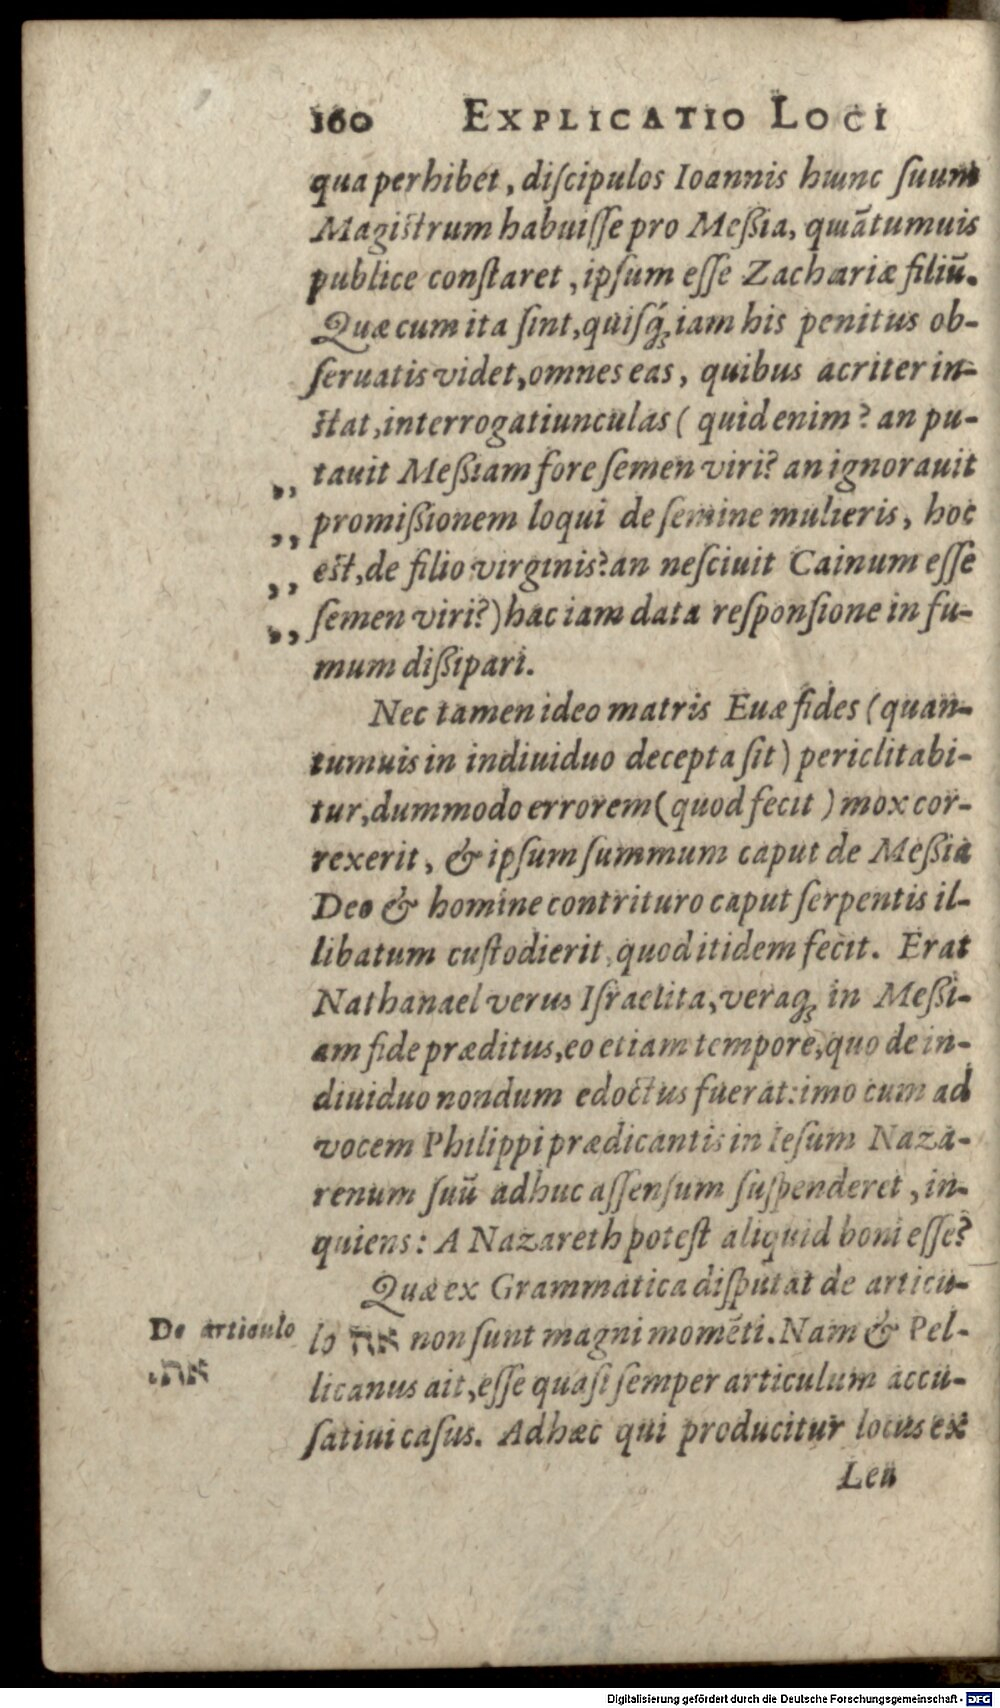 160 EXPLICATIO LOCI
qua perhibet, diſcipulos Ioannis hunc ſuum
Magiſtrum habuiſſe pro Meßia, quãtumuis
publice conſtaret, ipſum eſſe Zachariæ filiũ.
Quæ cum ita ſint, quiſq́; iam his penitus ob-
ſeruatis videt, omnes eas, quibus acriter in-
ſtat, interrogatiunculas ( quid enim? an pu-
,, tauit Meßiam fore ſemen viri? an ignorauit
,, promißionem loqui de ſemine mulieris, hoc
,, eſt, de filio virginis? an neſciuit Cainum eſſe
,, ſemen viri?) hac iam data reſponſione in fu-
mum dißipari.
Nec tamen ideo matris Euæ fides (quan-
tumuis in indiuiduo decepta ſit) periclitabi-
tur, dummodo errorem (quod fecit ) mox cor-
rexerit, & ipſum ſummum caput de Meßia
Deo & homine contrituro caput ſerpentis il-
libatum cuſtodierit, quod itidem fecit. Erat
Nathanael verus Iſraelita, veraq; in Meßi-
am fide præditus, eo etiam tempore, quo de in-
diuiduo nondum edoctus fuerat: imo cum ad
vocem Philippi prædicantis in Ieſum Naza-
renum ſuũ adhuc aſſenſum ſuſpenderet, in-
quiens: A Nazareth poteſt aliquid boni eſſe?
Quæ ex Grammatica diſputat de articu-
De articulo
את.
lo את non ſunt magni momẽti. Nam & Pel-
licanus ait, eſſe quaſi ſemper articulum accu-
ſatiui caſus. Adhæc qui producitur locus ex
Leu
Digitalisierung gefördert durch die Deutsche Forschungsgemeinschaft - DFG